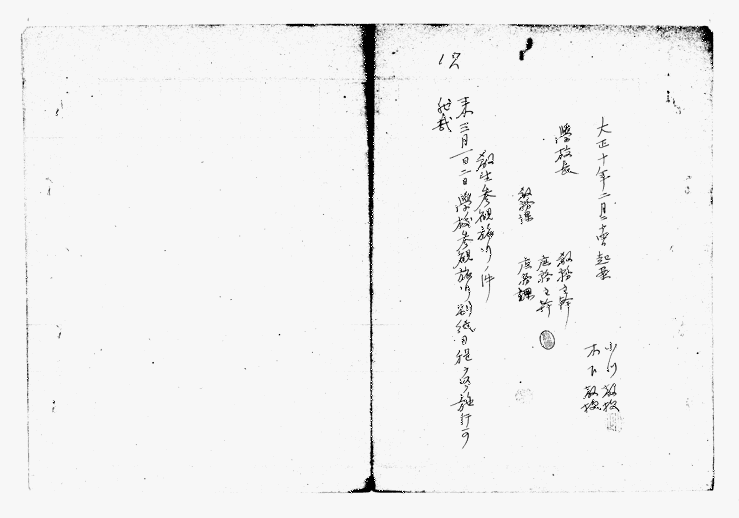 大正十年二月 日起案
小川教授
木下教授
學校長
教務主幹
庶務主幹
教務課
庶務課
教生参観旅行ノ件
来三月一日二日學校参観旅行別紙日程ノ 施行可
然哉